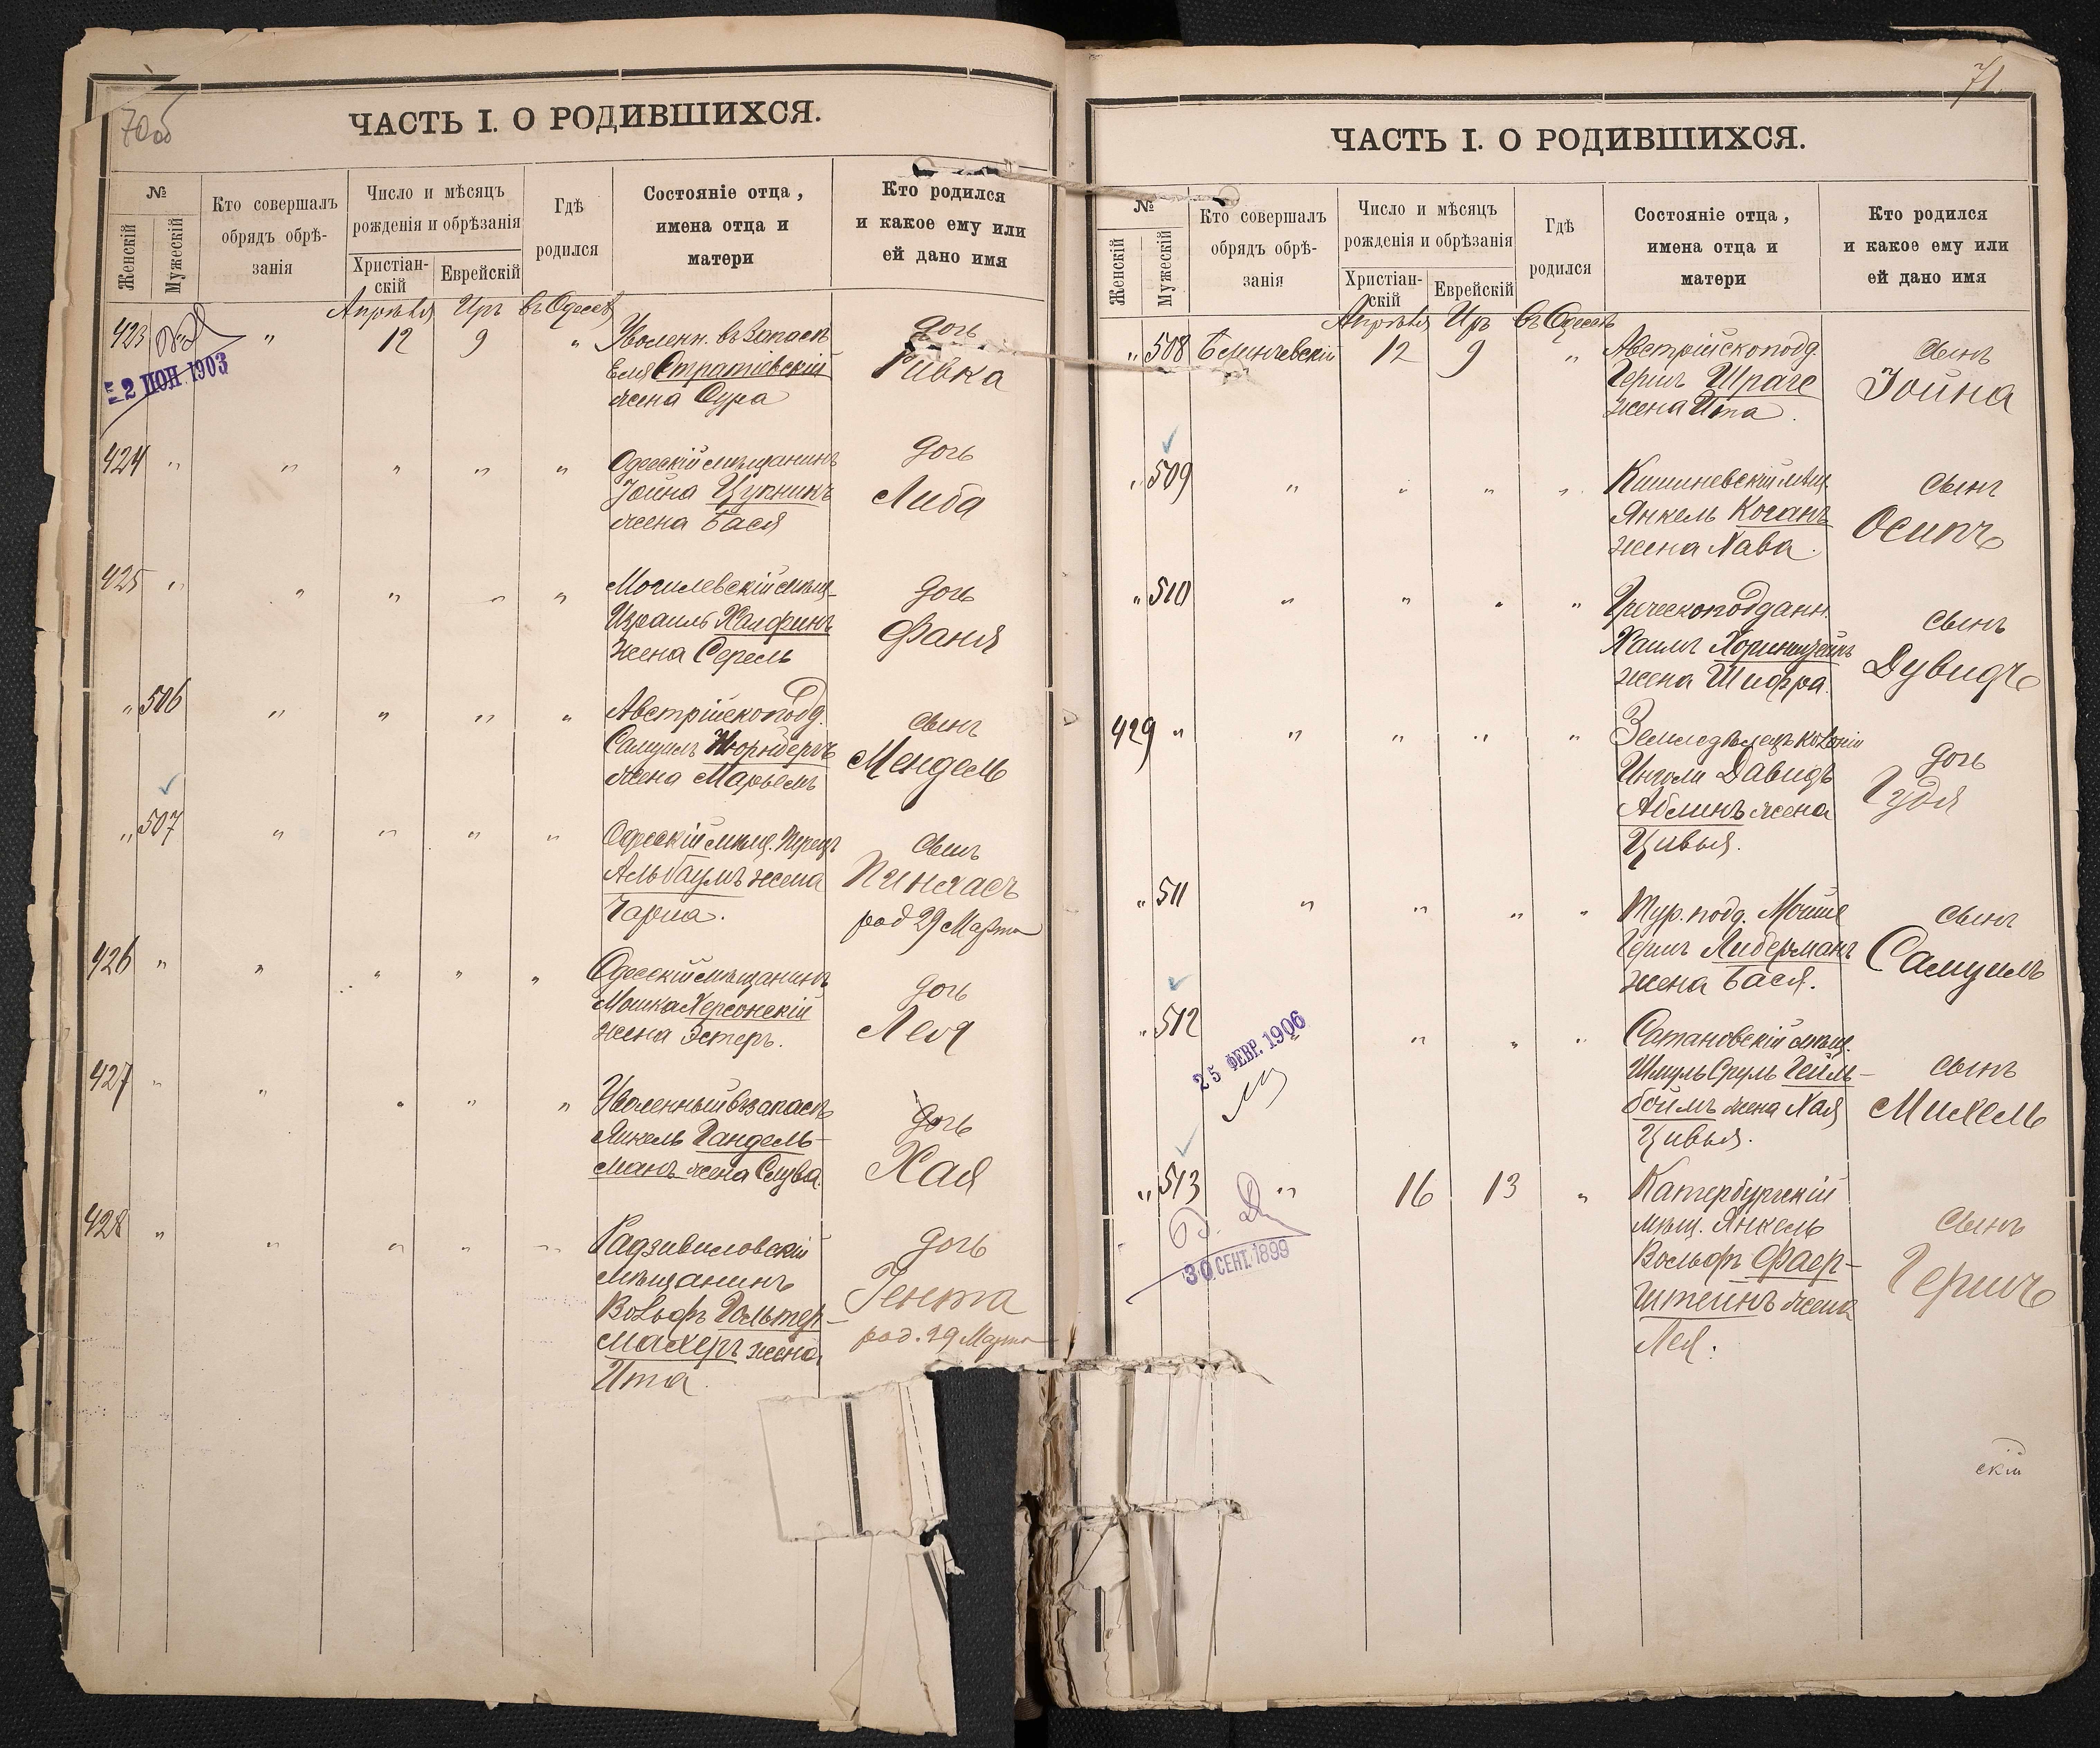 70об
ЧАСТЬ I. О РОДИВШИХСЯ.
№
Женскій
Мужескій
Кто совершалъ
обрядъ обрѣ-
занія
Число и мѣсяцъ
рожденія и обрѣзанія
Христіан-
скій
Еврейскій
Гдѣ
родился
Состояніе отца,
имена отца и
матери
Кто родился
и какое ему или
ей дано имя
Апрѣля Иръ въ Одессѣ
423 " 12 9 " Уволенн. въ Запасъ дочь
2 ІЮН. 1903
Еля Стратіевскій Ривка
жена Сура
424 " " " " " Одесскій мѣщанинъ дочь
Іойна Цупникъ Либа
жена Бася
425 " " " " " Могилевскій мѣщ. дочь
Израиль Халфинъ Фаня
жена Серель
" 506 " " " " Австрійскоподд. сынъ
Самуилъ Мендель
жена Марьемъ
" 507 " " " " Одесскій мѣщ. Перецъ сынъ
Альбаумъ жена Пинхасъ
Чарна. род 29 Марта
426 " " " " " Одесскій мѣщанинъ дочь
Мошка Херсонскій Лея
жена Эстеръ.
427 " " " " " Уволенный въ запасъ дочь
Янкель Гандель-
манъ жена Слува. Хая
428 " " " " " Радзивиловскій дочь
мѣщанинъ
Вольфъ Гольтер- Гента
махеръ жена род. 29 Марта
Ита.
71
ЧАСТЬ I. О РОДИВШИХСЯ.
№
Женскій
Мужескій
Кто совершалъ
обрядъ обрѣ-
занія
Число и мѣсяцъ
рожденія и обрѣзанія
Христіан-
скій
Еврейскій
Гдѣ
родился
Состояніе отца,
имена отца и
матери
Кто родился
и какое ему или
ей дано имя
Апрѣля Иръ въ Одессѣ
" 508 Белинчевскій 12 9 " Австрійскоподд. сынъ
Гершъ Шраге Іойна
жена Ита.
" 509 " " " " Кишиневскій мѣщ. сынъ
Янкель Коганъ Осипъ
жена Хава.
" 510 " " " " Греческоподданн. сынъ
Хаимъ Дувидъ
жена Шифра.
429 " " " " " Земледѣлецъ колоніи дочь
Инголи Давидъ Гудя
Аблинъ жена
Цивья.
" 511 " " " " Тур. подд. Мойше сынъ
Гершъ Либерманъ Самуилъ
жена Бася.
" 512 " " " Сатановскій мѣщ. сынъ
25 ФЕВР. 1906
Шмуль Сруль Гейль-
боймъ жена Хая Михель
Цивья.
" 513 " 16 13 " Катербургскій сынъ
мѣщ. Янкель
30 СЕНТ. 1899
Вольфъ Фаер- Гершъ
штейнъ жена
Лея.
скій